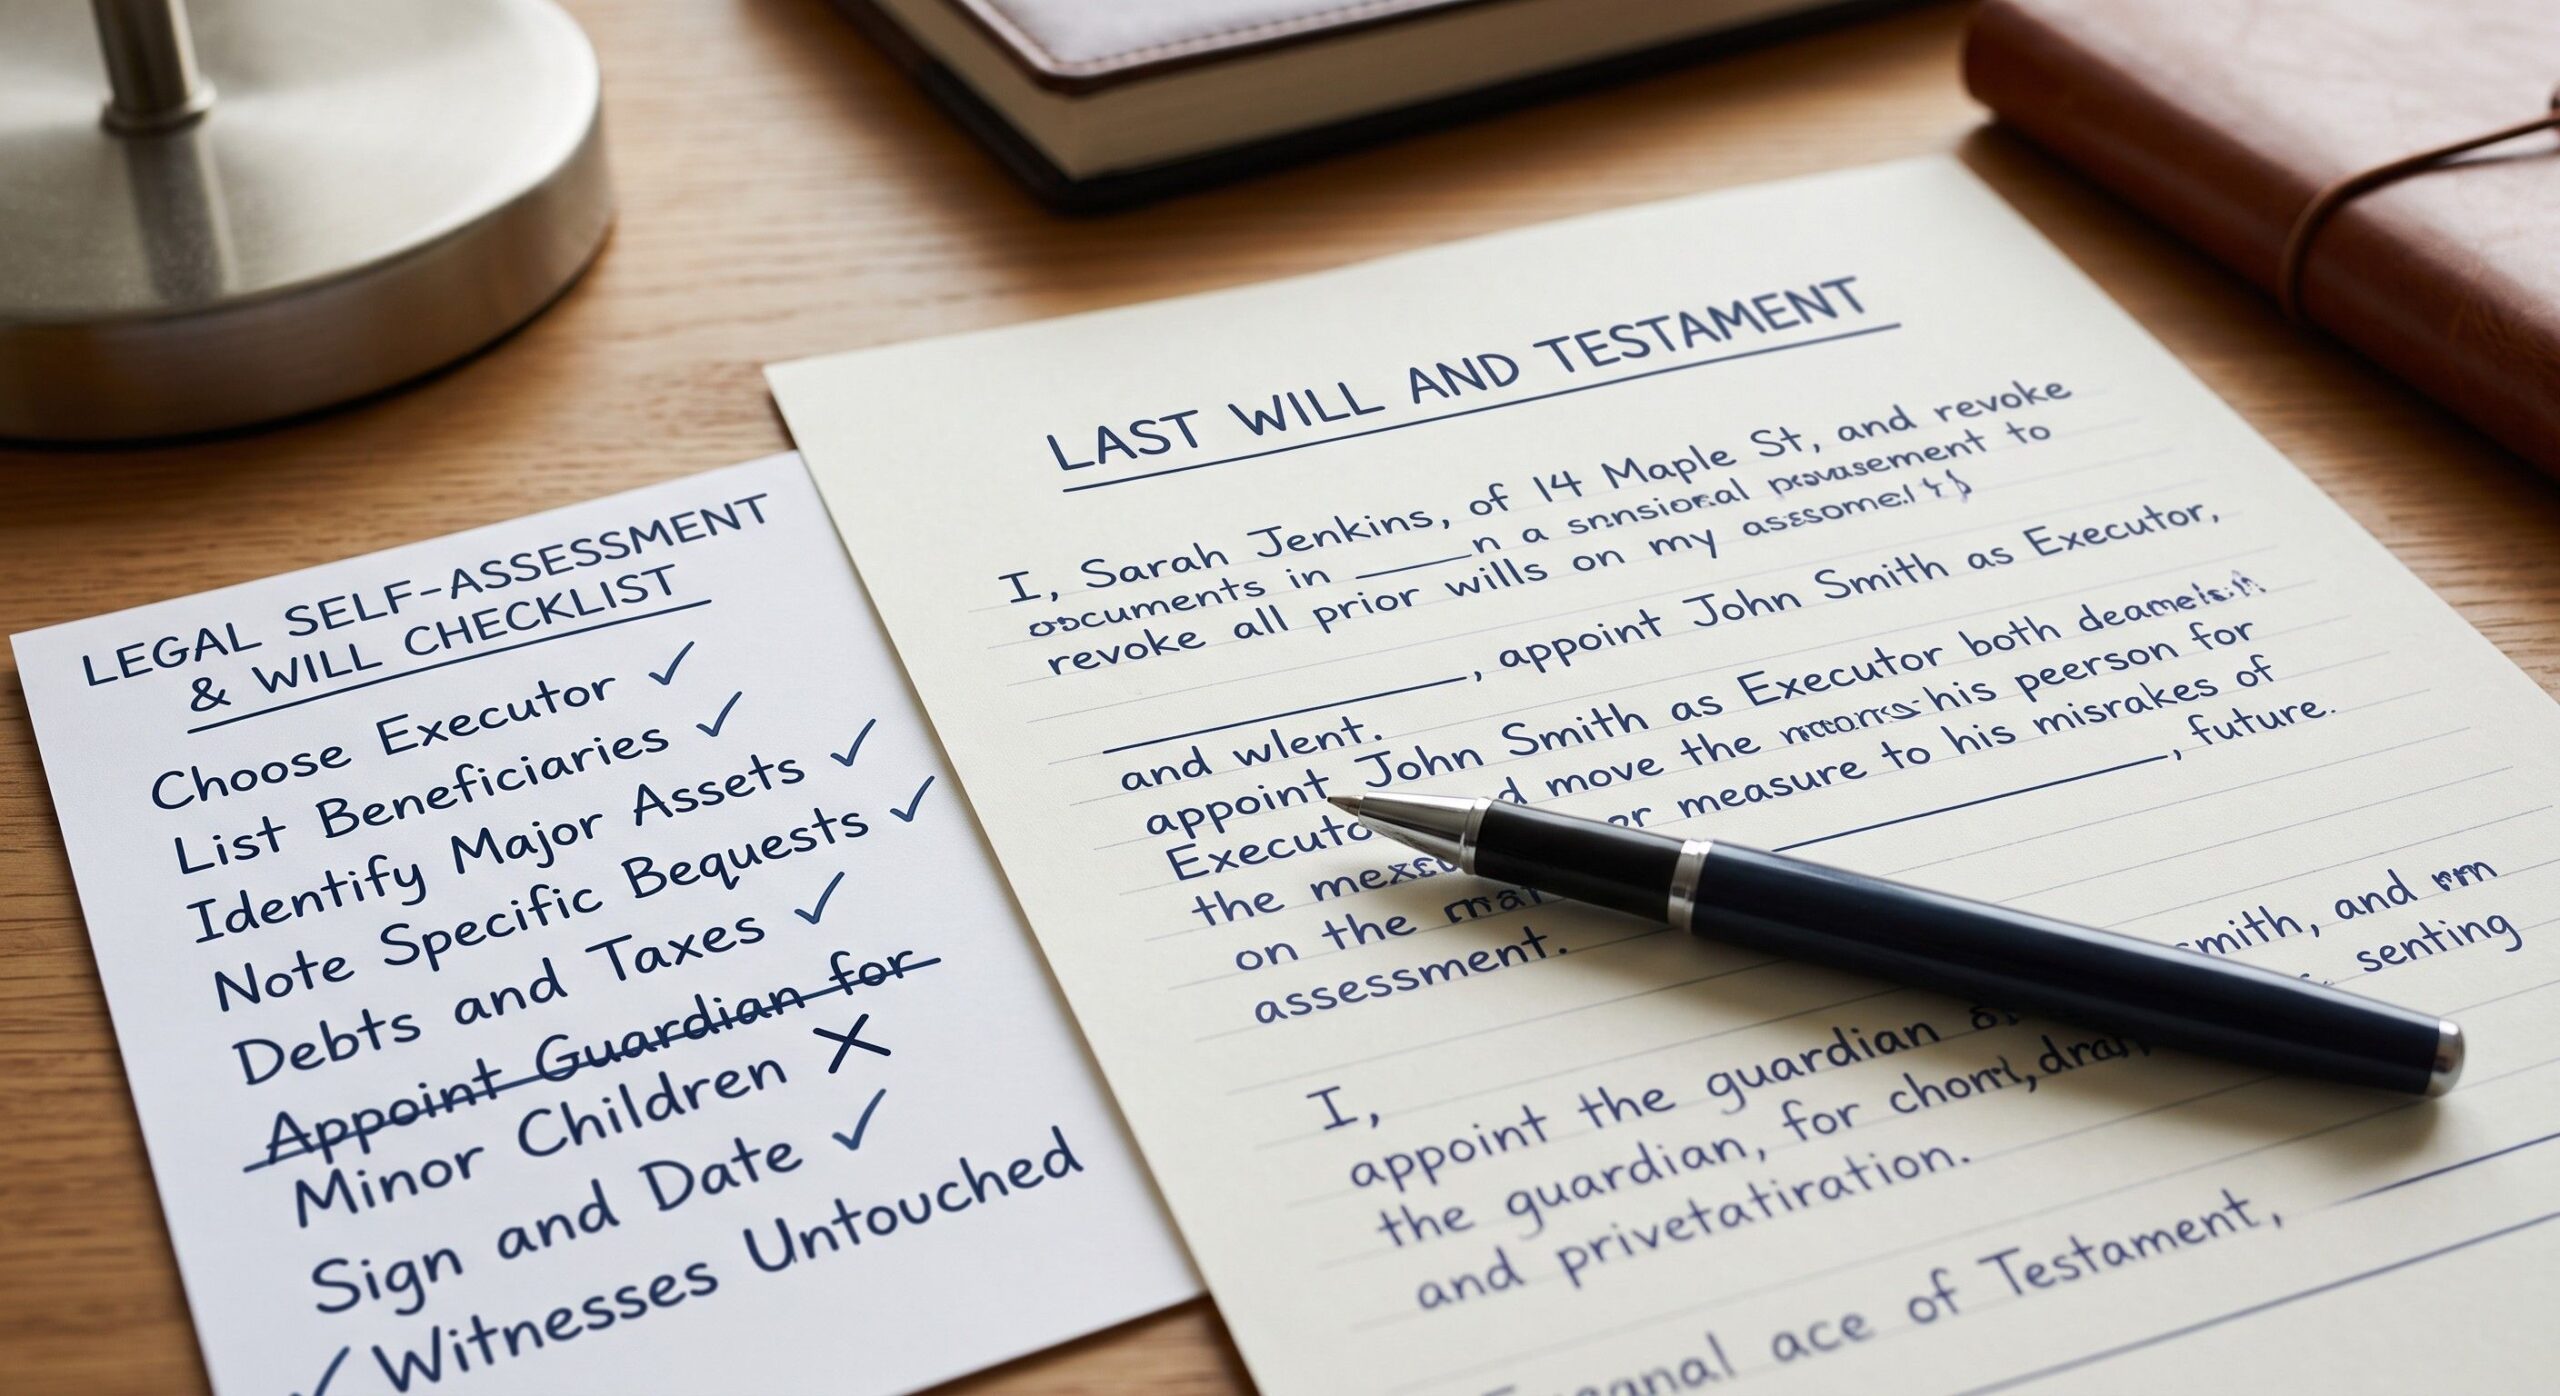 LEGAL SELF-ASSESSMENT
& WILL CHECKLIST
Choose Executor ✓
List Beneficiaries ✓
Identify Major Assets ✓
Note Specific Bequests ✓
Debts and Taxes ✓
Appoint Guardian for
Minor Children ✗
Sign and Date ✓
✓ Witnesses Untouched
LAST WILL AND TESTAMENT
I, Sarah Jenkins, of 14 Maple St, and revoke
in ____n a to
revoke all prior wills on my
____, appoint John Smith as Executor,
and wlent.
appoint John Smith as Executor both
move the his peerson for
measure to his misrakes of
the ____, future.
on the
assessment.
smith, and
senting
I,
appoint the guardian
the guardian, for
and privetatiration.
ace of Testament,